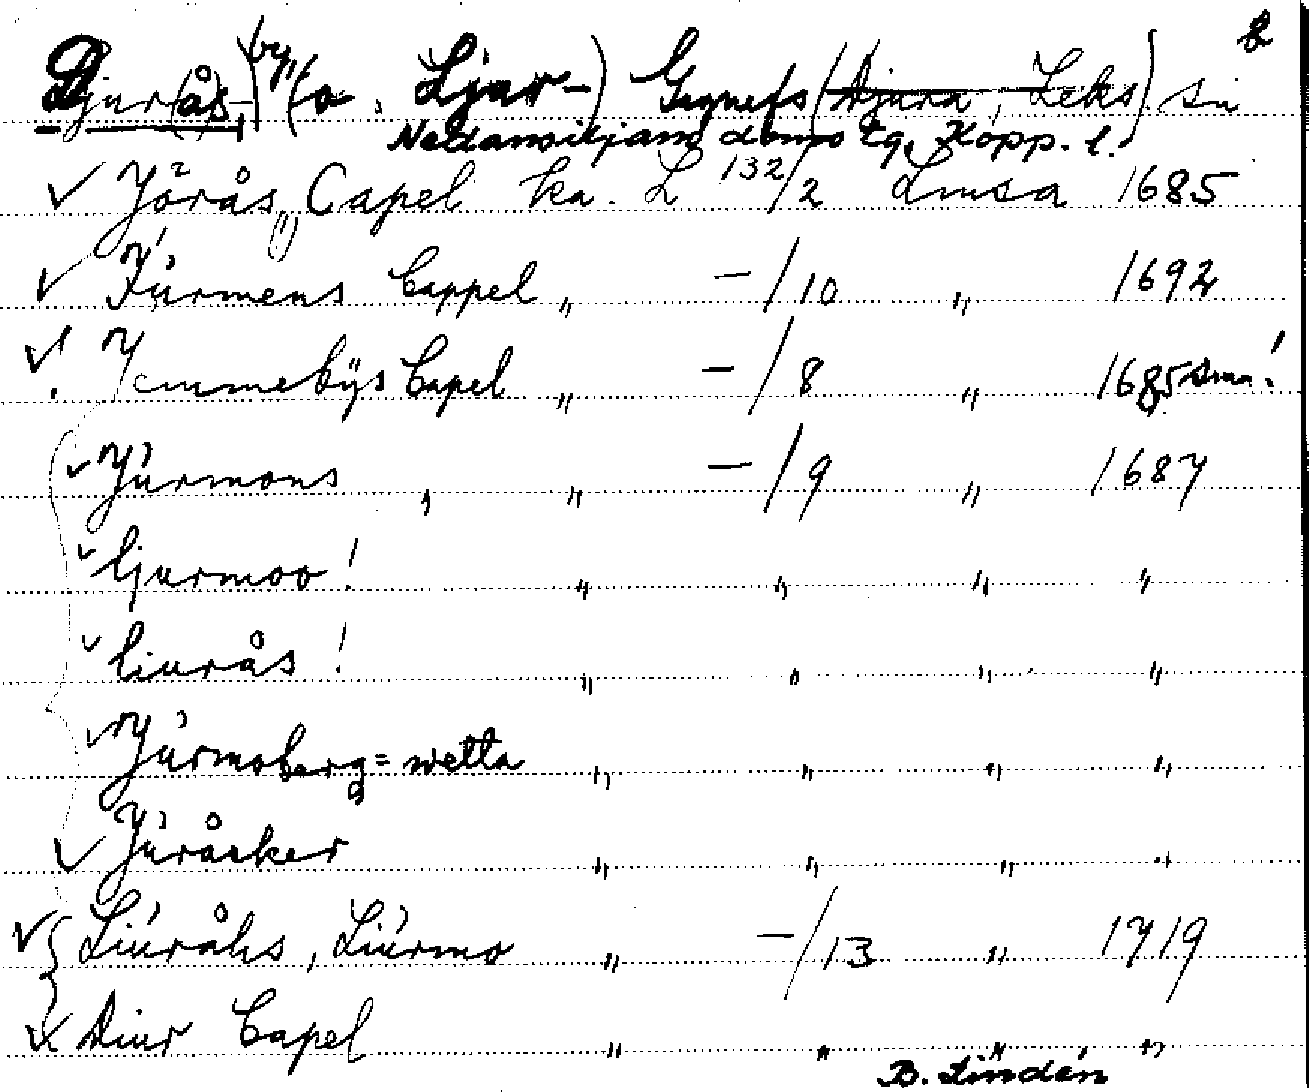 Djur(ås), by, (o. Ljur-) Gagnefs (Djura, Leks) sn b
Nedansiljans doms tg, Kopp. l.
✓ Jörås Capel ka. L 132/2 Lmsa 1685
✓ Júrmens Cappel „ —/10 „ 1692
✓! Jemmebÿs Capel „ —/8 „ 1685 sma!
✓ Júrmons „ „ —/9 „ 1687
✓ ljurmoo! „ „ „ „
✓ liurås! „ „ „ „
✓ Júrmoberg = wetta „ „ „ „
✓ Júråsker „ „ „ „
✓ Liúråhs, Liúrmo „ —/13 „ 1719
✓ Diur Capel „ „ „ „
B. Lindén